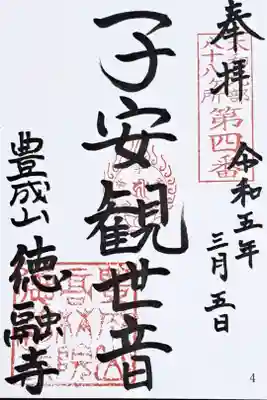 奉拝
第四番
令和五年
三月五日
子安観世音
豊成山
徳融寺
4